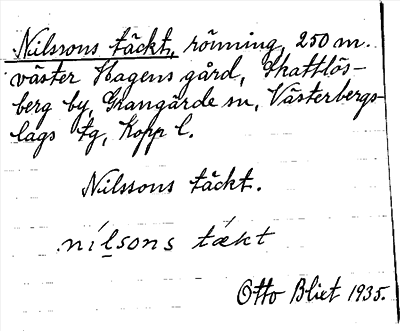 Nilssons täckt, rönning, 250 m.
väster Hagens gård, Skattlös-
berg by, Grangärde sn, Västerbergs-
lags tg, Kopp l.
Nilssons täckt.
nílsons tǽkt
Otto Blixt 1935.